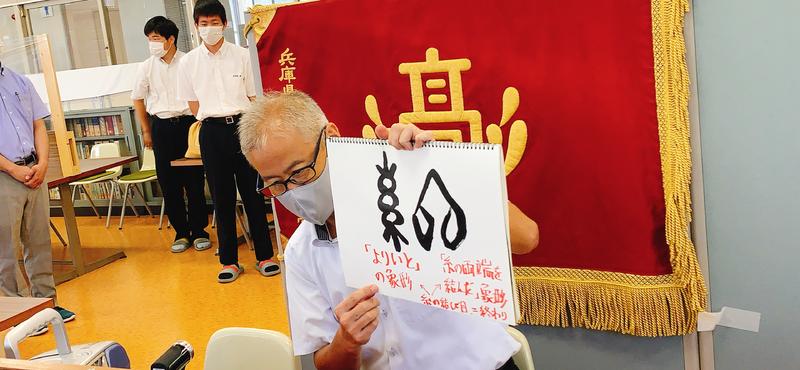 兵庫県
高
「よりいと」
の象形
「糸の両端を
結んだ」象形
糸の結び目=終わり